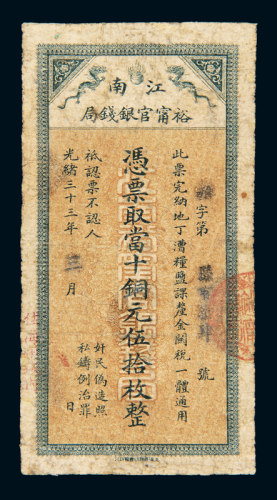 江南
裕甯官銀錢局
字第
號
此票完納地丁漕糧鹽課釐金關稅一體通用
憑票取當十銅元伍拾枚整
祗認票不認人
光緒三十三年
三月
日
奸民偽造照
私鑄例治罪